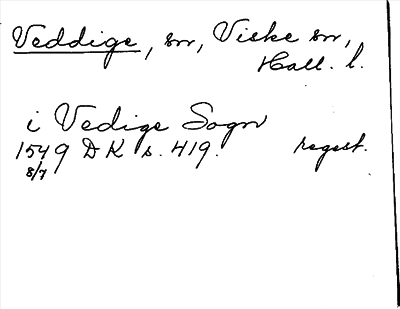 Veddige, sn, Viske sn,
Hall. l.
i Vedige Sogn
1549 DK s. 419. regest.
8/7